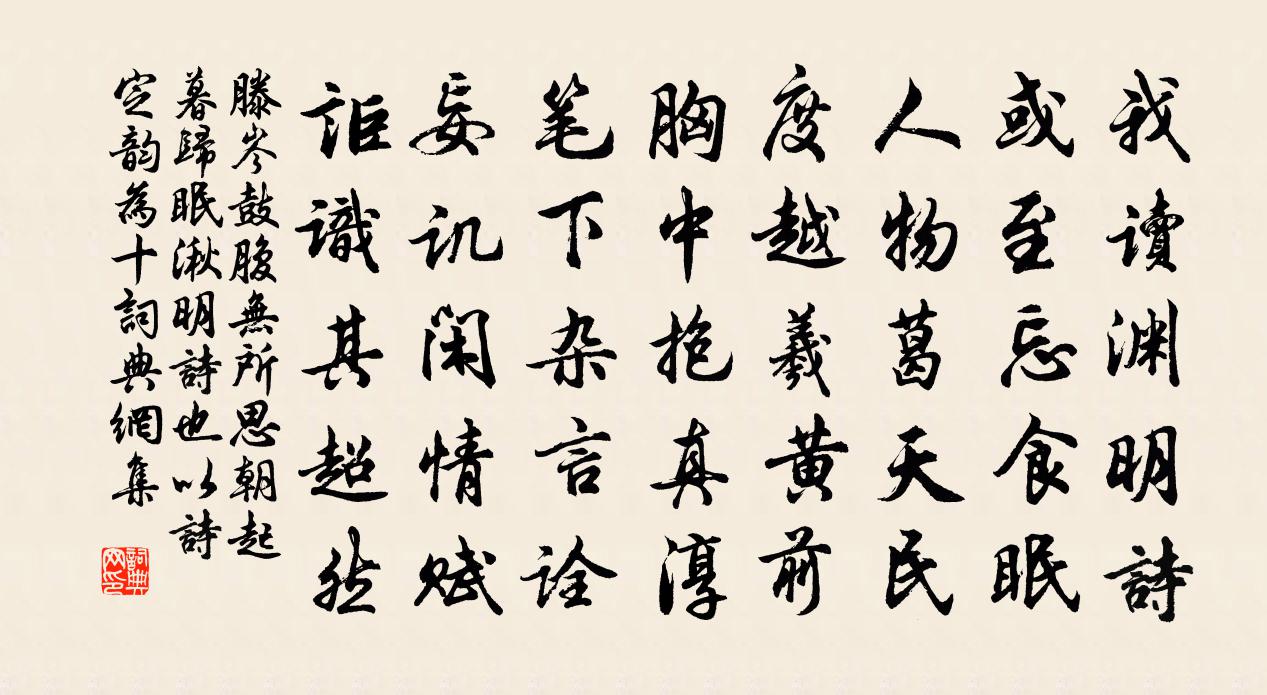 我讀渊明詩
或至忘食眠
人物葛天民
度越羲黄前
胸中抱真淳
笔下杂言诠
妄讥闲情赋
詎識其超然
滕岑鼓腹無所思朝起
暮歸眠淵明詩也以詩
定韵為十詞典網集
詞典网印